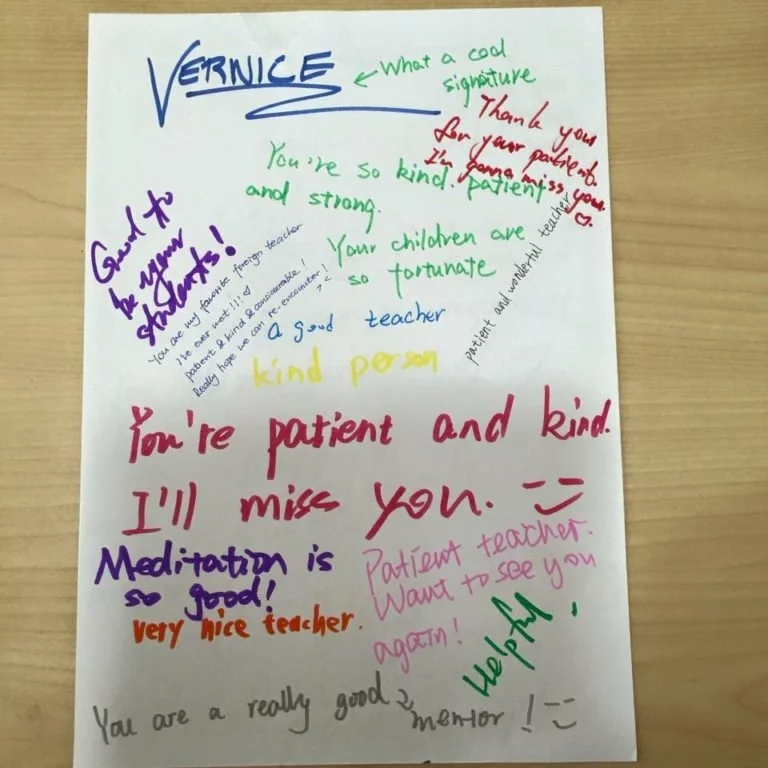 VERNICE
What a cool
signature
Thank you
for your patient.
I'm gonna miss you.
You're so kind. patient
and strong.
Good to
be your
students!
Your children are
so fortunate
patient and wonderful teacher
You are my favorite foreign teacher
I've ever met!!!
patient & kind & considerable!
Really hope we can re-encounter!
a good teacher
kind person
You're patient and kind.
I'll miss you.
Meditation is
so good!
Patient teacher.
Want to see you
again!
very nice teacher.
Helpful
You are a really good
mentor!